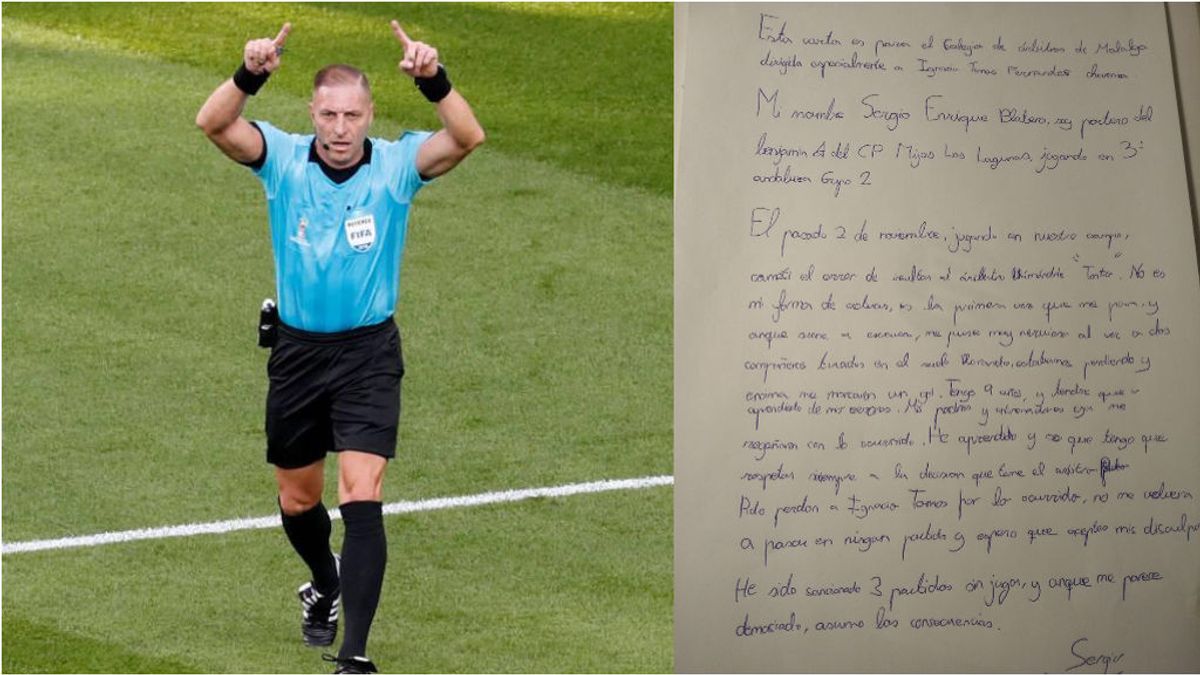 REFEREE
FIFA
Esta carta es para el Colegio de árbitros de Malalga
dirigida especialmente a Ignacio Tomas Fernandes
Mi nombre Sergio Enrique Blatero, soy portero del
benjamin A del CP Mijas Las Lagunas, jugando en 3ª
andaluza Grupo 2
El pasado 2 de noviembre, jugando en nuestro campo,
cometi el error de insultar al árbitro "Tonto". No es
mi forma de actuar, es la primera vez que me pasa, y
anque suene a escusa, me puse muy nervioso al ver a dos
compañeros tirados en el suelo llorando, estabamos perdiendo y
encima me marcaron un gol. Tengo 9 años, y tendre que
aprenderlo de mis errores. Mis padres y entrenadores ya me
regañaron con lo ocurrido. He aprendido y se que tengo que
respetar siempre a la decision que tome el arbitro
Pido perdon a Ignacio Tomas por lo ocurrido, no me volvera
a pasar en ningun partido y espero que aceptes mis disculpa
He sido sancionado 3 partidos sin jugar, y anque me parece
demasiado, asumo las consecuencias.
Sergio